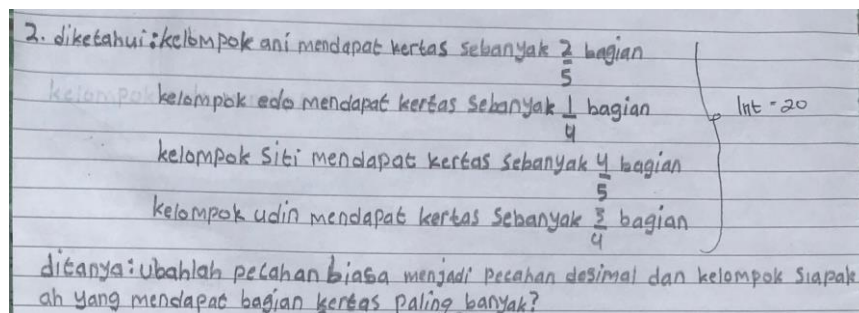 2. diketahui : kelompok ani mendapat kertas sebanyak 2/5 bagian
kelompok edo mendapat kertas sebanyak 1/4 bagian
Int = 20
kelompok siti mendapat kertas sebanyak 4/5 bagian
kelompok udin mendapat kertas sebanyak 3/4 bagian
ditanya : ubahlah pecahan biasa menjadi pecahan desimal dan kelompok siapak
ah yang mendapat bagian kertas paling banyak?